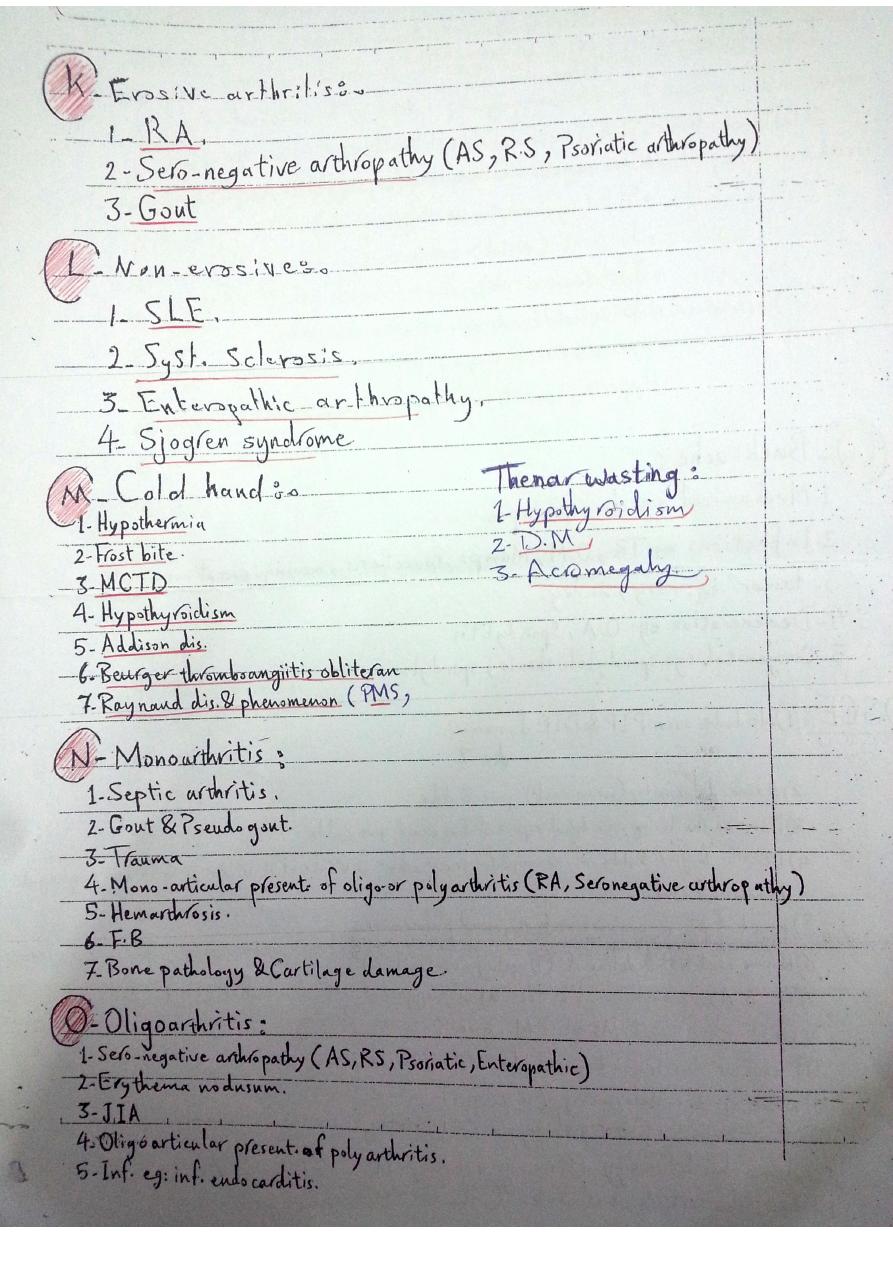 K- Erosive arthritis:-
1- RA.
2- Sero-negative arthropathy (AS, R.S, Psoriatic arthropathy)
3- Gout
L- Non-erosive:-
1- SLE.
2- Syst. Sclerosis.
3- Enteropathic arthropathy.
4- Sjogren syndrome
M- Cold hand:-
1- Hypothermia
2- Frost bite.
3- MCTD
4- Hypothyroidism
5- Addison dis.
6- Beurger thromboangiitis obliteran
7- Raynaud dis. & phenomenon (PMS,
Thenar wasting:
1- Hypothyroidism
2- D.M
3- Acromegaly
N- Monoarthritis:
1- Septic arthritis.
2- Gout & Pseudo gout.
3- Trauma
4- Mono-articular present. of oligo-or polyarthritis (RA, Seronegative arthropathy)
5- Hemarthrosis.
6- F.B
7- Bone pathology & Cartilage damage.
O- Oligoarthritis:
1- Sero-negative arthropathy (AS, RS, Psoriatic, Enteropathic)
2- Erythema nodusum.
3- JIA
4- Oligoarticular present. of poly arthritis.
5- Inf. eg: inf. endocarditis.